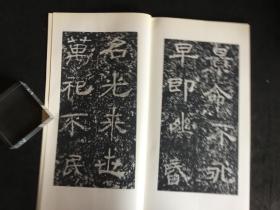 景命不永
早即幽昏
名光来世
萬祀不泯